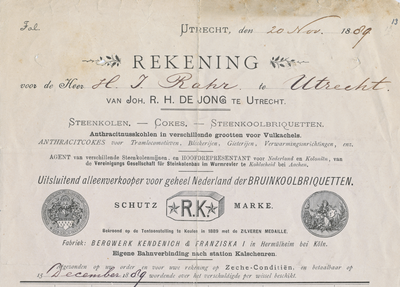 Fol.
UTRECHT, den 20 Nov. 1889
13
REKENING
voor de Heer H. J. Rahr. te Utrecht.
VAN JOH. R. H. DE JONG TE UTRECHT.
STEENKOLEN, — COKES, — STEENKOOLBRIQUETTEN.
Anthracitnusskohlen in verschillende grootten voor Vulkachels.
ANTHRACITCOKES voor Tramlocomotieven, Bleekerijen, Gieterijen, Verwarmingsinrichtingen, enz.
AGENT van verschillende Steenkolenmijnen, en HOOFDREPRESENTANT voor Nederland en Koloniën, van
de Vereinigungs Gesellschaft für Steinkohlenbau im Wurmrevier te Kohlscheid bei Aachen.
Uitsluitend alleenverkooper voor geheel Nederland der BRUINKOOLBRIQUETTEN.
SCHUTZ R.K. MARKE.
Bekroond op de Tentoonstelling te Keulen in 1889 met de ZILVEREN MEDAILLE.
Fabriek: BERGWERK KENDENICH & FRANZISKA I in Hermülheim bei Köln.
Eigene Bahnverbindung nach station Kalscheuren.
gezonden op uwe order en voor uwe rekening op Zeche-Conditiën, en betaalbaar op
15 December 1889 wordende over het verschuldigde per wissel beschikt.